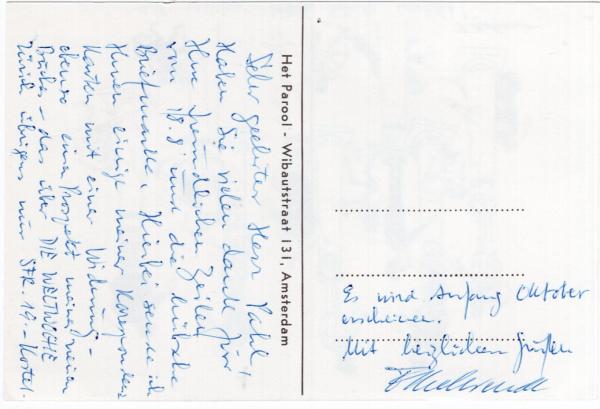 Sehr geehrter Herr Pahl,
Haben Sie vielen Dank für
Ihre freundlichen Zeilen
vom 18.8 und die hübsche
Briefmarke. Hierbei sende ich
Ihnen einige meiner
Karten mit einer Widmung -
ebenso einen Prospekt meines neuen
Buches - das über DIE WELTWOCHE
Zürich übrigens nur SFR. 19.- kostet.
Het Parool - Wibautstraat 131, Amsterdam
Es wird Anfang Oktober
erscheinen.
Mit herzlichen Grüßen